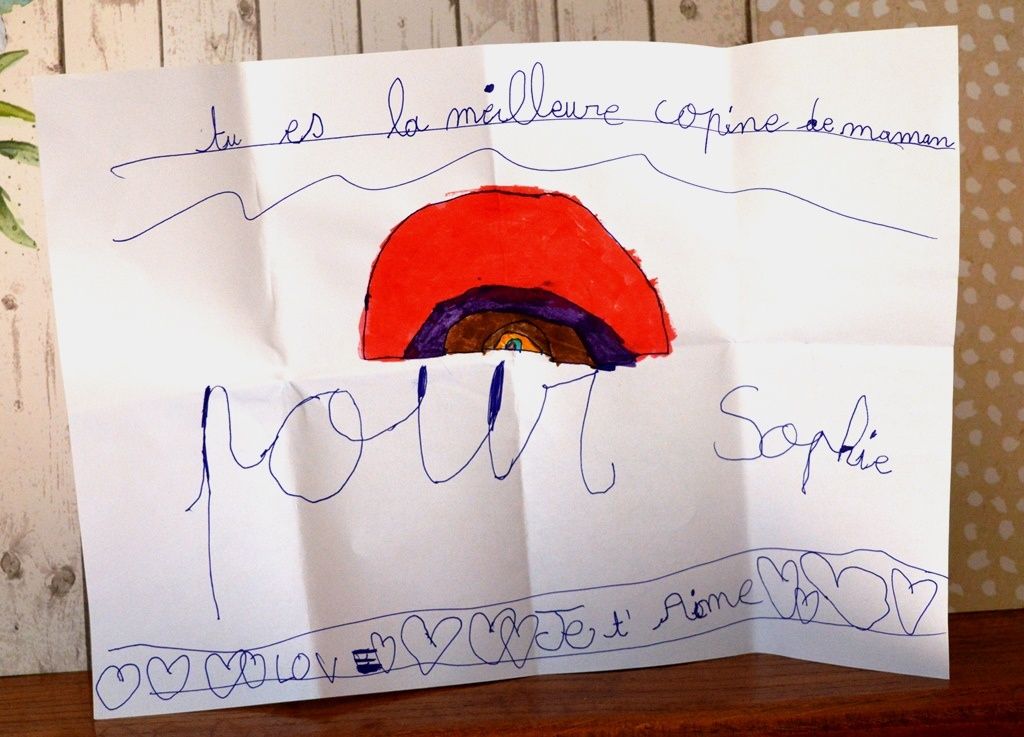 tu es la meilleure copine de maman
pour Sophie
LOVE Je t'Aime